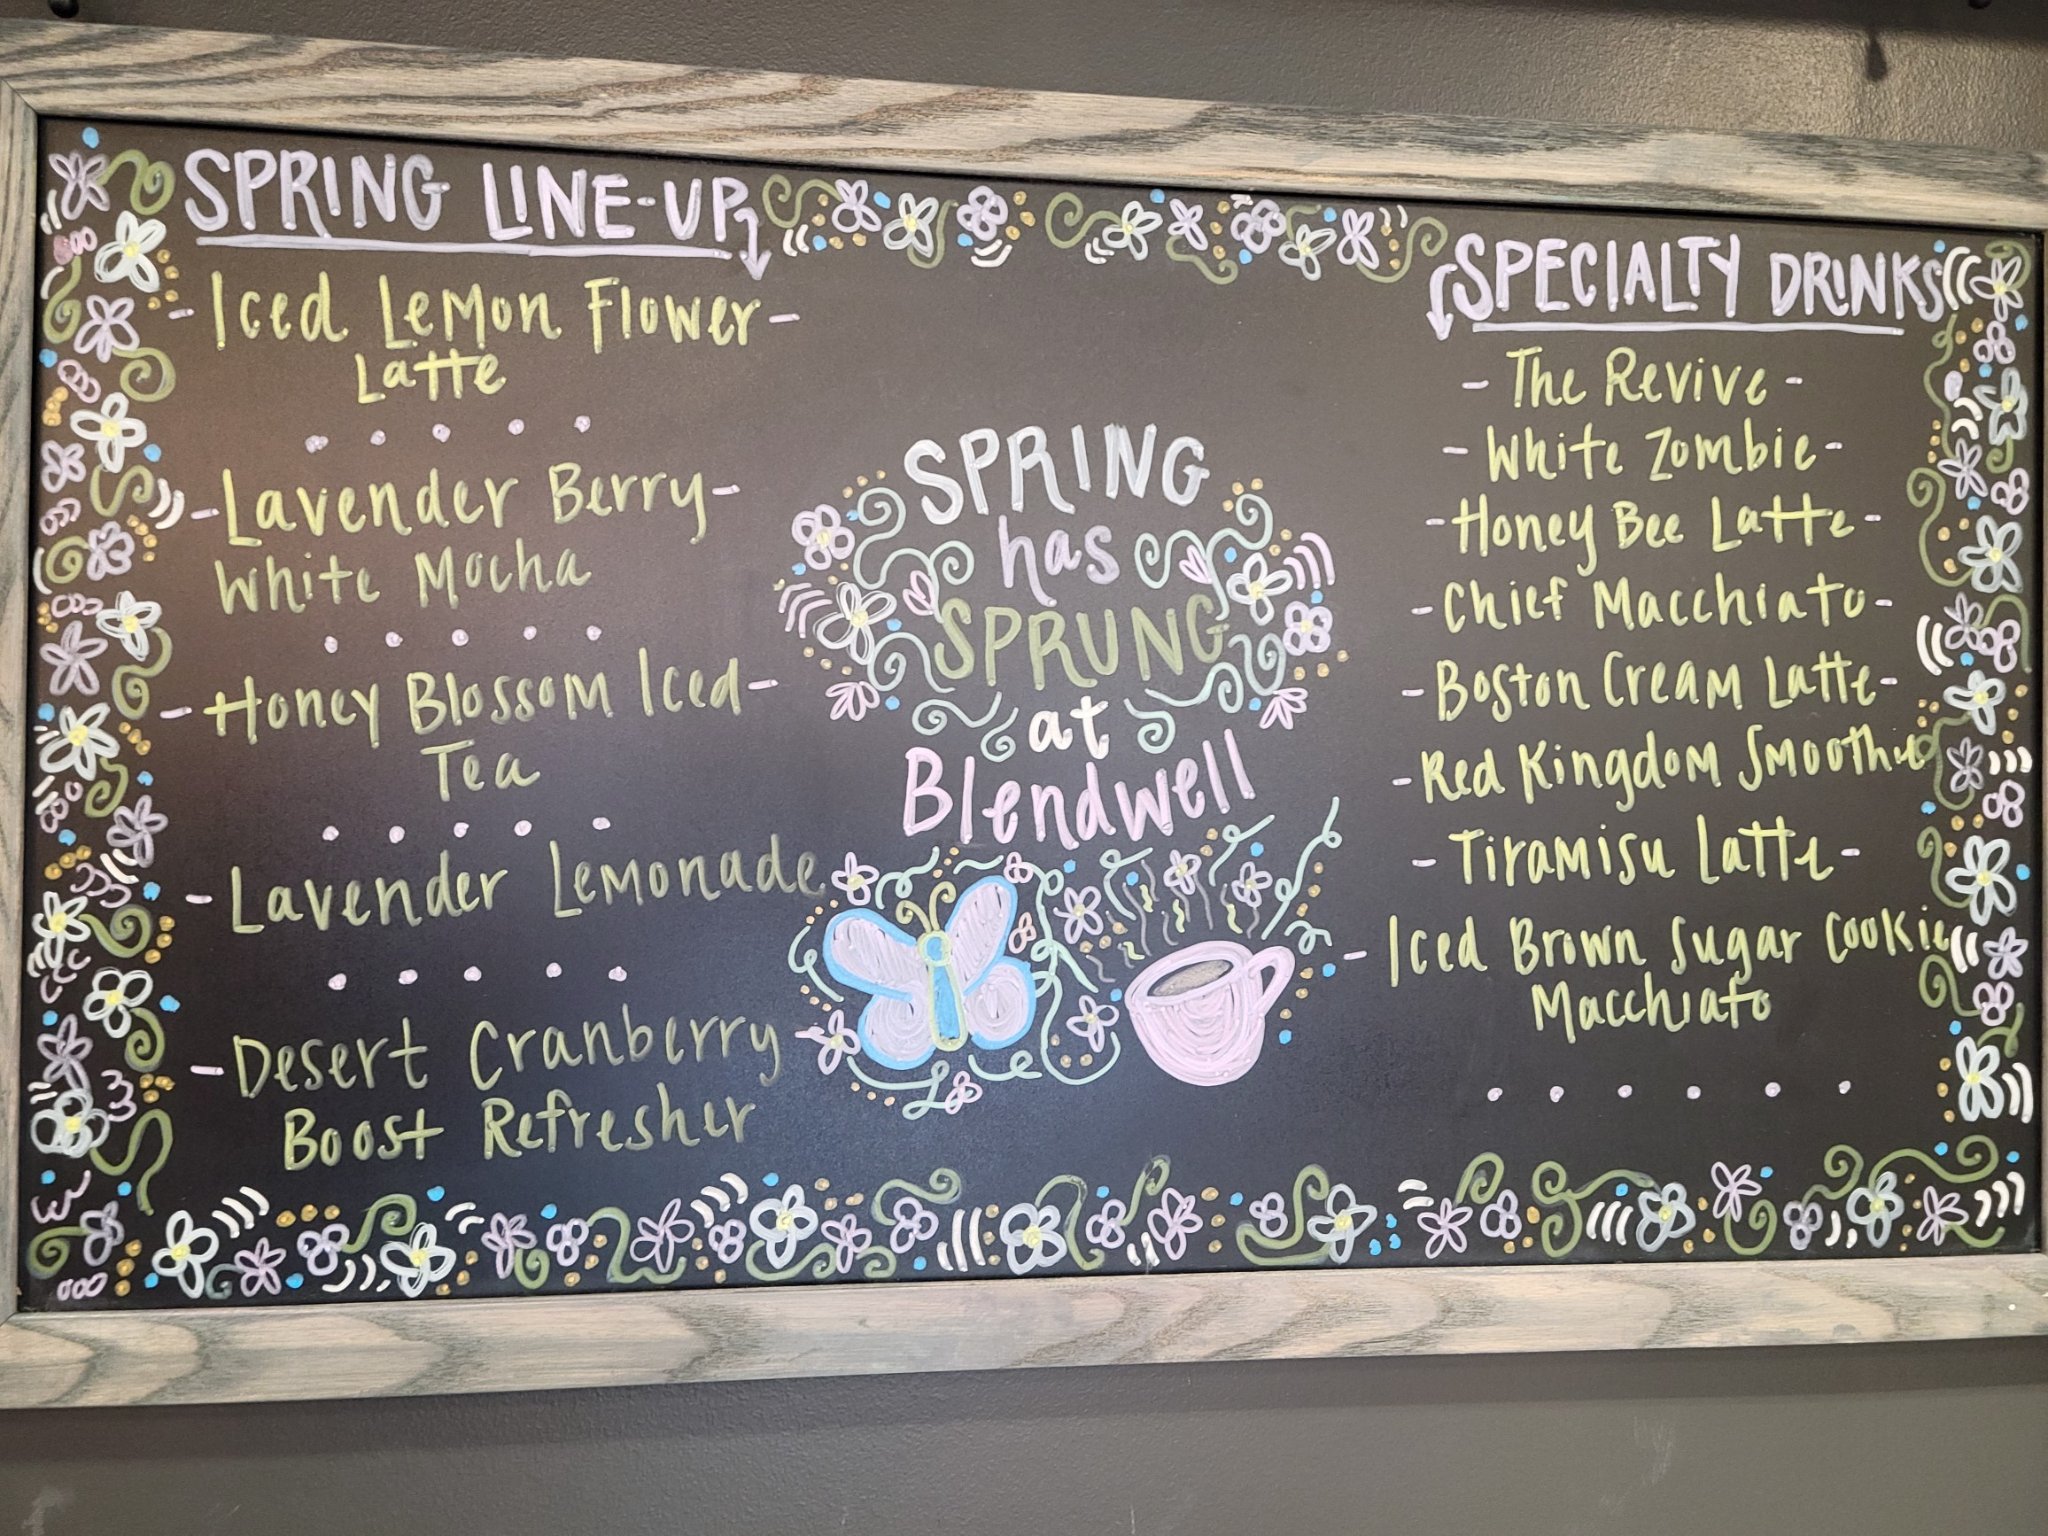 SPRING LINE-UP
- Iced Lemon Flower -
Latte
- Lavender Berry -
White Mocha
- Honey Blossom Iced -
Tea
- Lavender Lemonade
- Desert Cranberry
Boost Refresher
SPRING
has
SPRUNG
at
Blendwell
SPECIALTY DRINKS
- The Revive -
- White Zombie -
- Honey Bee Latte -
- Chief Macchiato -
- Boston Cream Latte -
- Red Kingdom Smoothie
- Tiramisu Latte -
- Iced Brown Sugar Cookie
Macchiato